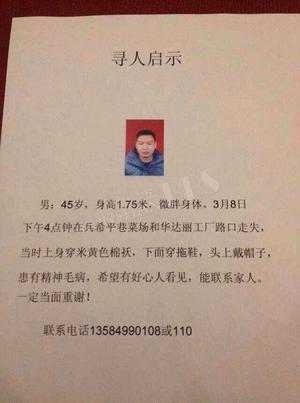 寻人启示
男：45岁，身高1.75米，微胖身体。3月8日
下午4点钟在兵希平巷菜场和华达丽工厂路口走失，
当时上身穿米黄色棉袄，下面穿拖鞋，头上戴帽子，
患有精神毛病，希望有好心人看见，能联系家人。
一定当面重谢！
联系电话13584990108或110